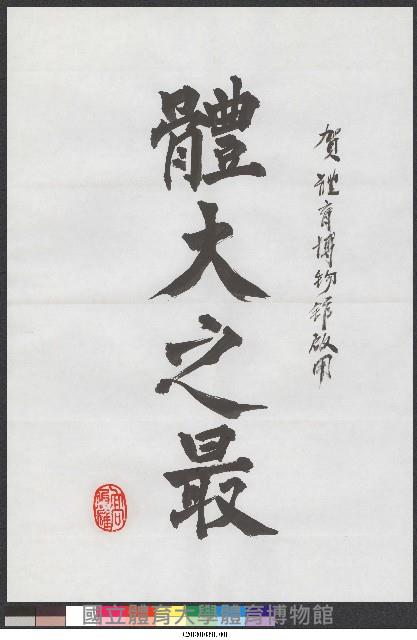 賀體育博物館啟用
體大之最
國立體育大學體育博物館